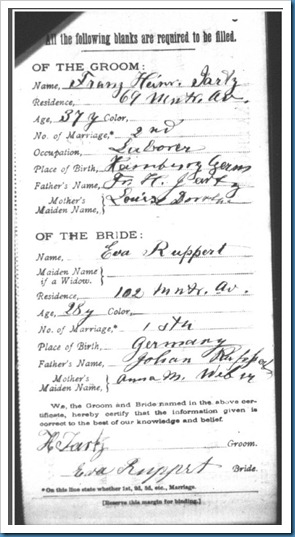 All the following blanks are required to be filled.
OF THE GROOM:
Name, Franz Heinr. Tartz
Residence, 69 Mntr. Av.
Age, 37 y Color,
No. of Marriage,* 2nd
Occupation, Laborer
Place of Birth, Germ
Father's Name, Fr. H. Tartz
Mother's Maiden Name, Louise
OF THE BRIDE:
Name, Eva Ruppert
Maiden Name if a Widow.
Residence, 102 Mntr. Av.
Age, 28 y Color,
No. of Marriage,* 1st
Place of Birth, Germany
Father's Name, Julian Ruppert
Mother's Maiden Name, Anna M.
We, the Groom and Bride named in the above cer-
tificate, hereby certify that the information given is
correct to the best of our knowledge and belief.
H Tartz Groom.
Eva Ruppert Bride.
*On this line state whether 1st, 2d, 3d, etc., Marriage.
[Reserve this margin for binding.]